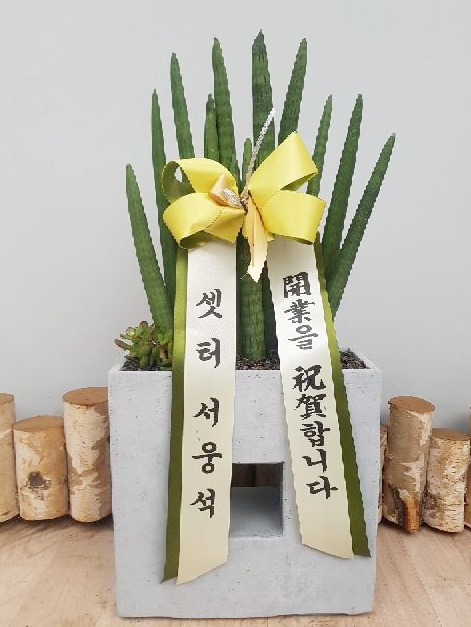 셋터 서웅석
開業을 祝賀합니다